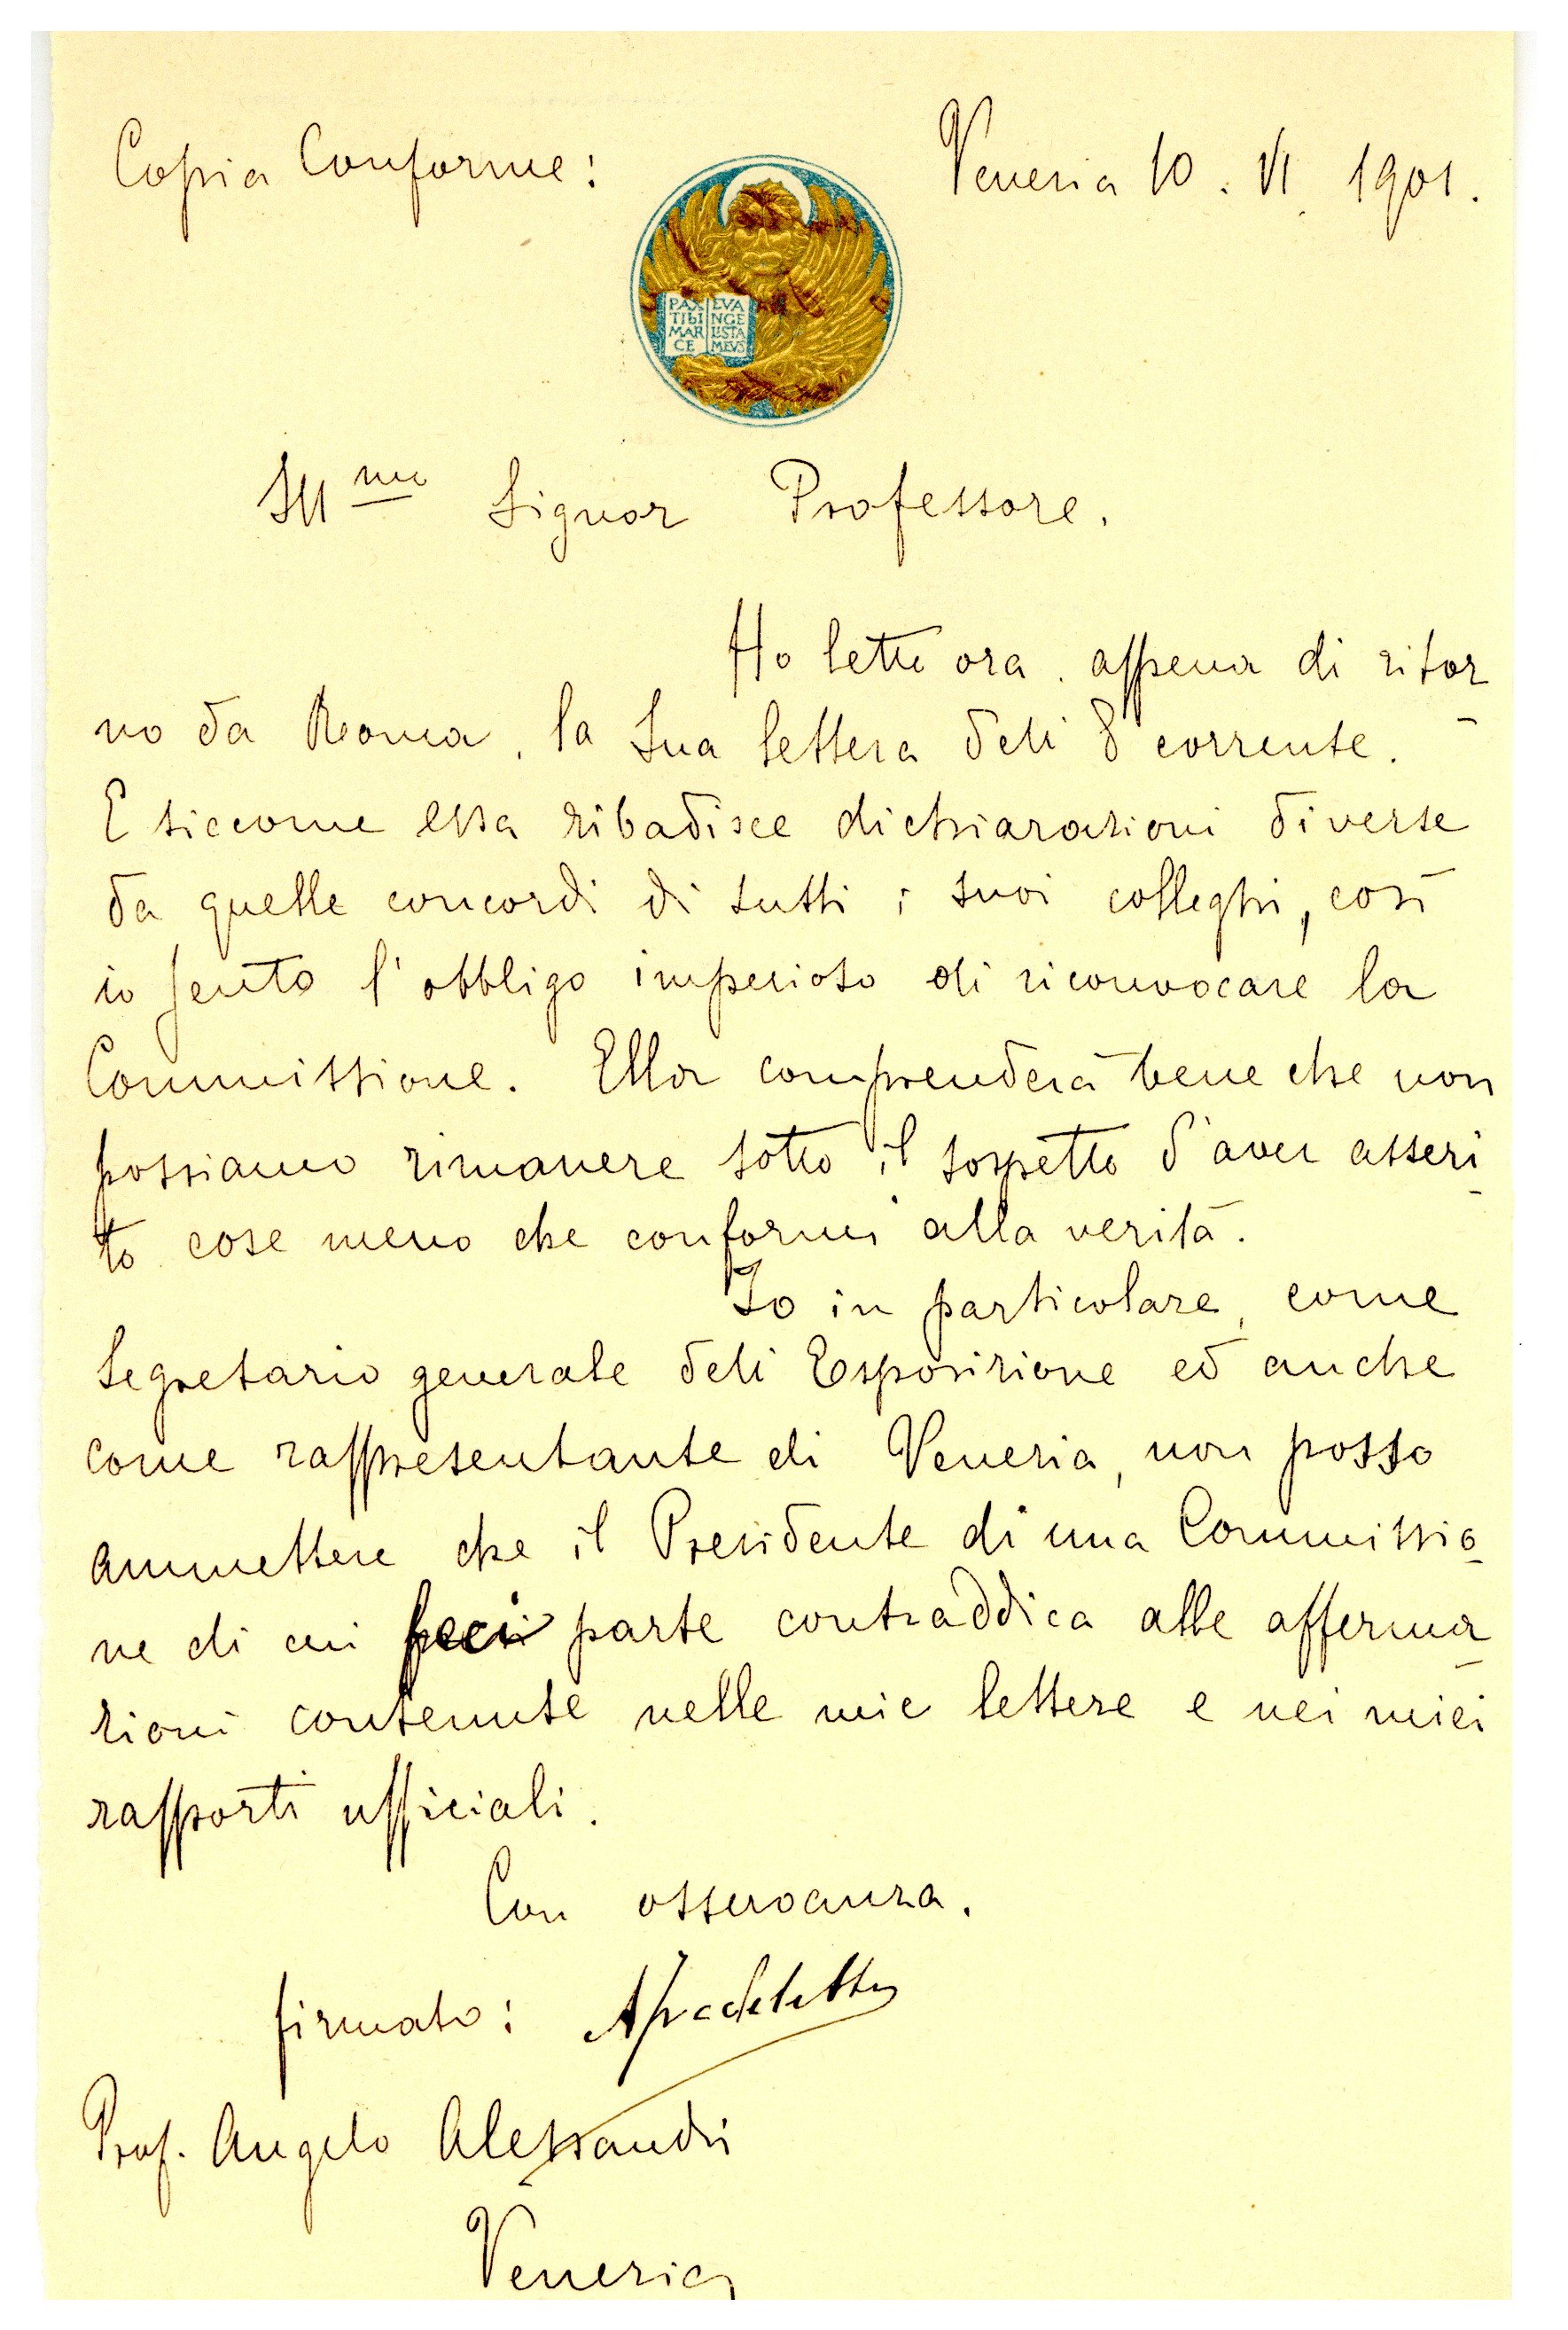 Copia Conforme:
Venezia 10. VI. 1901.
PAX EVA
TIBI NGE
MAR LISTA
CE MEVS
Ill mo Signor Professore.
Ho letto ora, appena di ritor
no da Roma, la Sua lettera dell' 8 corrente.
E siccome essa ribadisce dichiarazioni diverse
da quelle concordi di tutti i suoi colleghi, così
io sento l'obbligo imperioso di riconvocare la
Commissione. Ella comprenderà bene che non
possiamo rimanere sotto il sospetto d'aver asseri
to cose meno che conformi alla verità.
Io in particolare, come
Segretario generale dell' Esposizione ed anche
come rappresentante di Venezia, non posso
ammettere che il Presidente di una Commissio
ne di cui feci parte contraddica alle afferma
zioni contenute nelle mie lettere e nei miei
rapporti ufficiali.
Con osservanza.
firmato: AFradeletto
Prof. Angelo Alessandri
Venezia